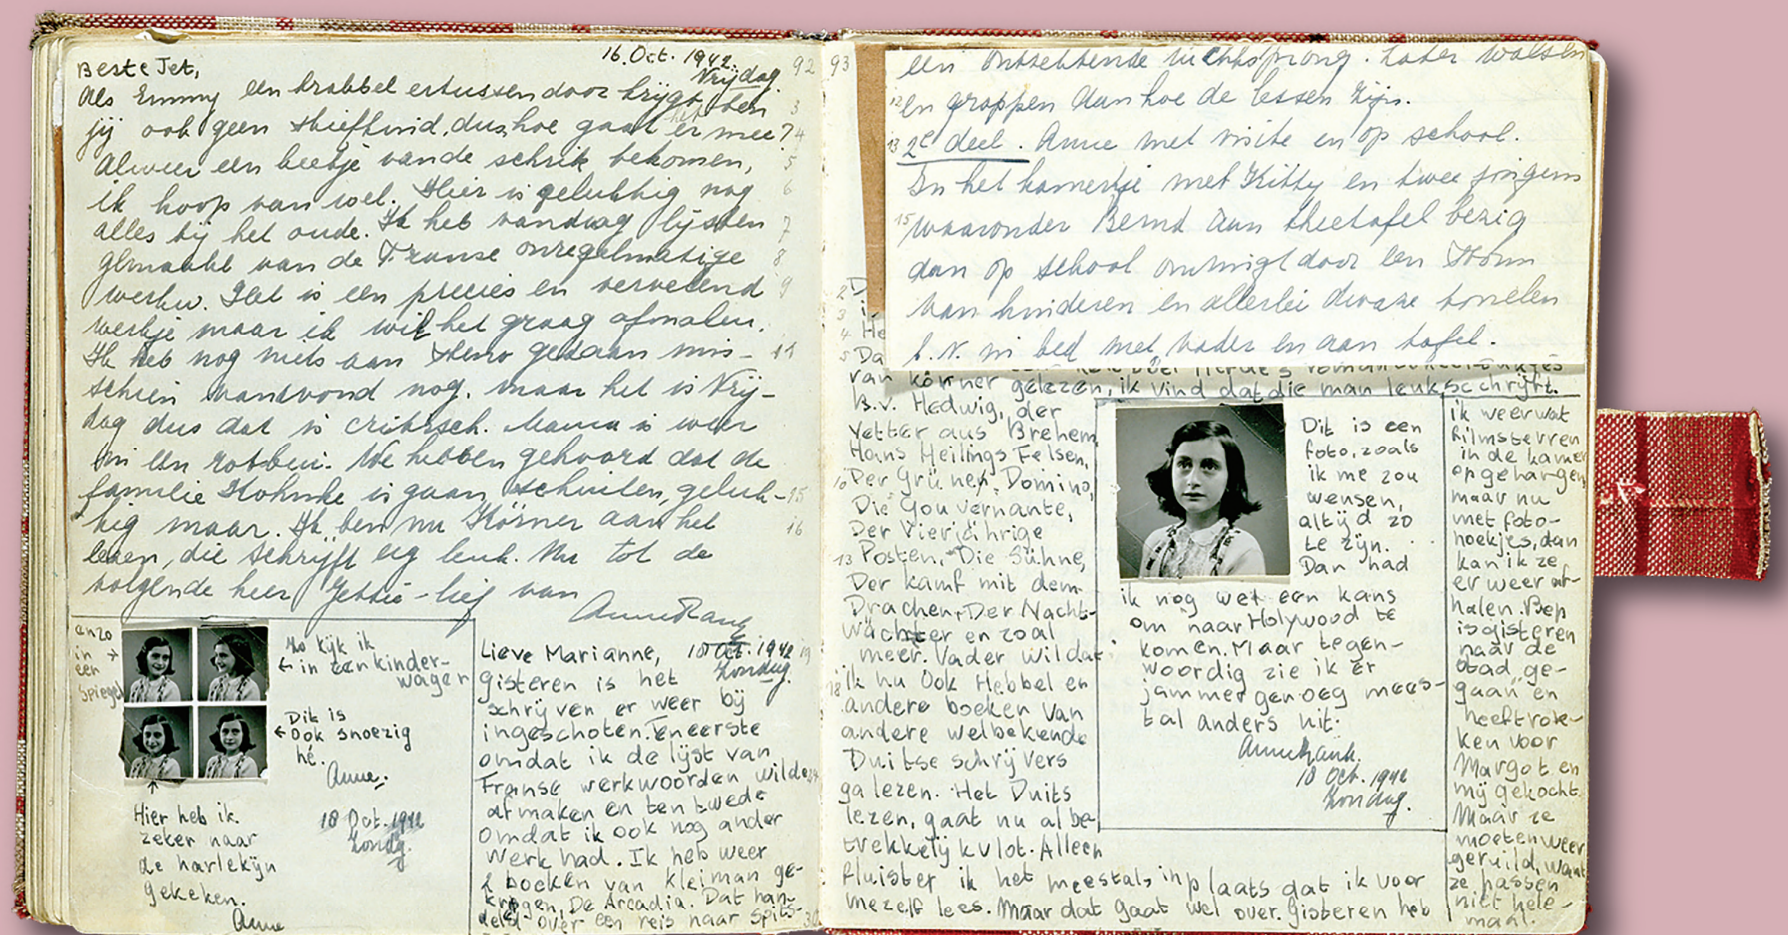 16. Oct. 1942.
Vrijdag.
92
Beste Jet,
Als Emmy een krabbel ertussen door krijgt ben
jij ook geen stiefkind, dus hoe gaat het er mee?
Alweer een beetje van de schrik bekomen,
ik hoop van wel. Hier is gelukkig nog
alles bij het oude. Ik heb vandaag lijsten
gemaakt van de Franse onregelmatige
werkw. Het is een precies en vervelend
werkje maar ik wil het graag afmaken.
Ik heb nog niets aan Steno gedaan mis-
schien vanavond nog, maar het is Vrij-
dag dus dat is critisch. Mama is weer
in een rotbui. We hebben gehoord dat de
familie is gaan schuilen, geluk-
kig maar. Ik ben nu Körner aan het
lezen, die schrijft erg leuk. Nu tot de
volgende keer Jettie-lief van
Anne Frank
enzo
in
een
spiegel
Zo kijk ik
in een kinder-
wagen
Dit is
ook snoezig
hé.
Anne.
Hier heb ik
zeker naar
de harlekijn
gekeken.
Anne
18 Oct. 1942
Zondag
Lieve Marianne,
18 Oct. 1942
Zondag.
gisteren is het
schrijven er weer bij
ingeschoten. Ten eerste
omdat ik de lijst van
Franse werkwoorden wilde
afmaken en ten twede
omdat ik ook nog ander
werk had. Ik heb weer
2 boeken van Kleiman ge-
kregen, De Arcadia. Dat han-
delt over een reis naar Spits-
93
een ontzettende luchtsprong. Later walsen
en grappen dan hoe de lessen zijn.
2e deel. Anne met visite en op school.
In het kamertje met Kitty en twee jongens
waaronder Bernd aan theetafel bezig
dan op school omringd door een stroom
van kinderen en allerlei dwaze tonelen
b.v. in bed met vader en aan tafel.
van körner gelezen, ik vind dat die man leuk schrijft.
B.v. Hedwig, der
Vetter aus Brehem,
Hans Heilings Felsen,
Der Grünen Domino,
Die Gouvernante,
Der Vierjährige
Posten, Die Sühne,
Der kamf mit dem
Drachen, Der Nacht-
wächter en zoal
meer. Vader wil dat
ik nu ook Hebbel en
andere boeken van
andere welbekende
Duitse schrijvers
ga lezen. Het Duits
lezen, gaat nu al be-
trekkelijk vlot. Alleen
fluister ik het meestal inplaats dat ik voor
mezelf lees. Maar dat gaat wel over. Gisteren heb
Dit is een
foto, zoals
ik me zou
wensen,
altijd zo
te zijn.
Dan had
ik nog wel een kans
om naar Holywood te
komen. Maar tegen-
woordig zie ik er
jammer genoeg mees-
tal anders uit.
Anne Frank.
18 Oct. 1942
Zondag.
ik weer wat
filmsterren
in de kamer
opgehangen
maar nu
met foto-
hoekjes, dan
kan ik ze
er weer af-
halen. Bep
is gisteren
naar de
stad ge-
gaan en
heeft rok-
ken voor
Margot en
mij gekocht.
Maar ze
moeten weer
geruild, want
ze passen
niet hele-
maal.